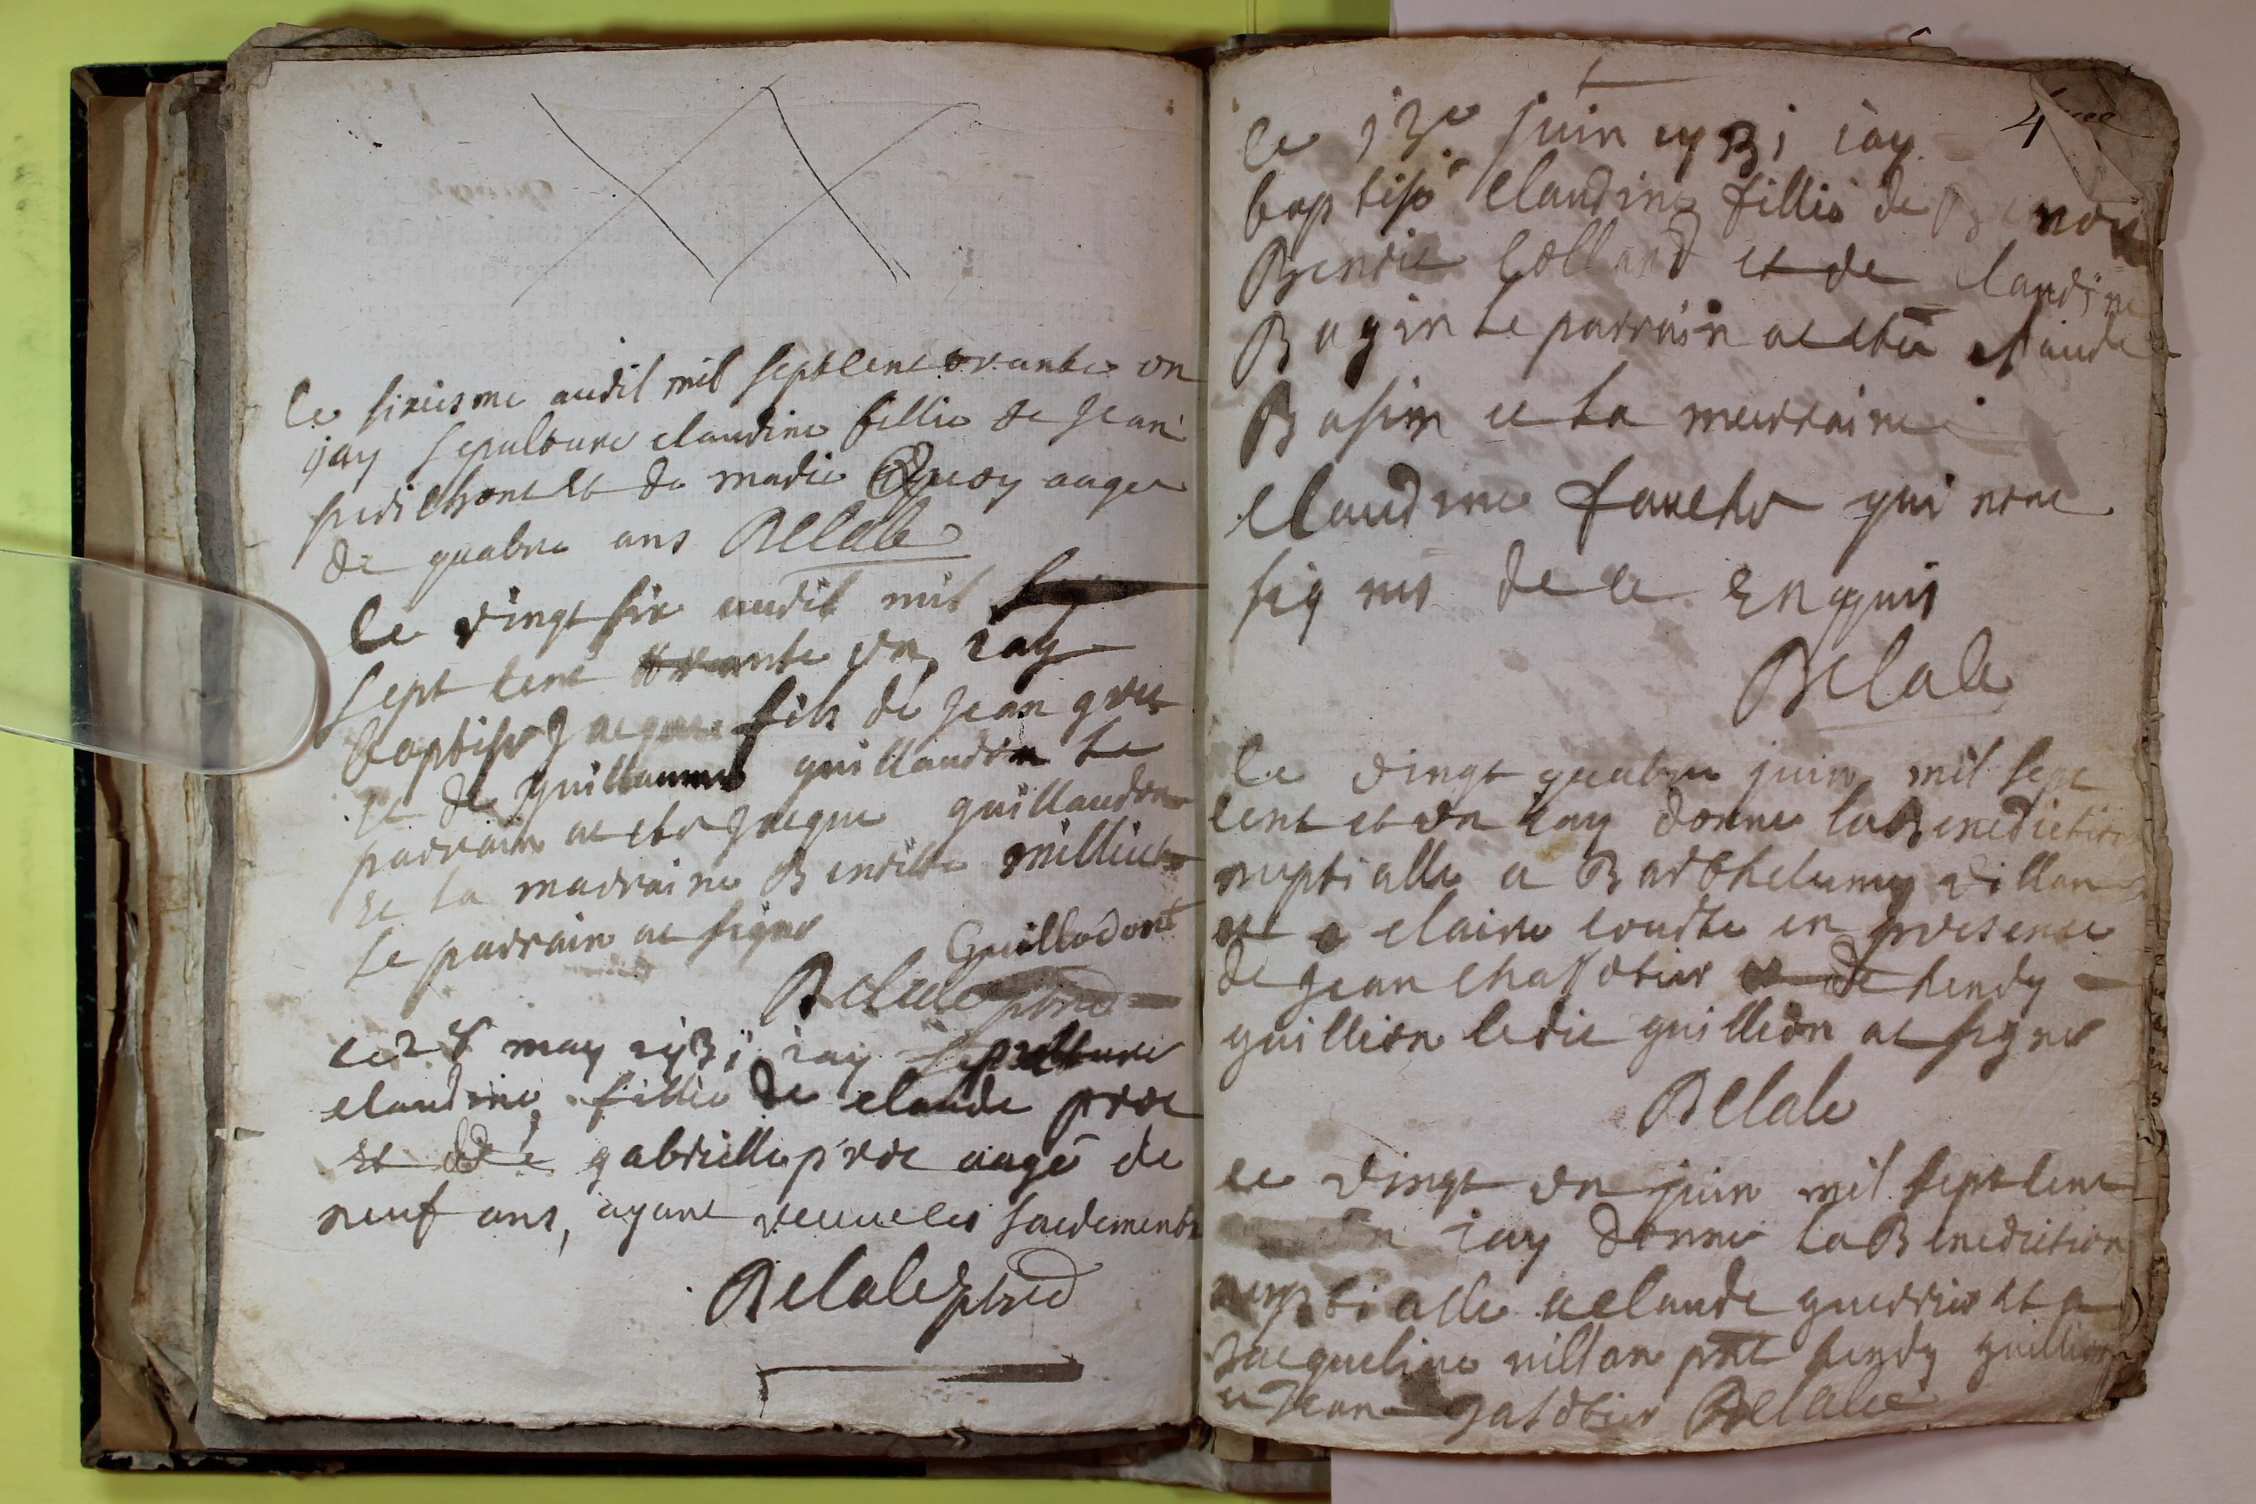 le sixiesme avril mil sept cent trante on
jay sepulture claudine fillie de Jean
et de marie aagee
de quatre ans Relale
le vingt six avril mil
sept cent trante un iay
baptise Jacque fils de Jean
et de guillaume guillaudon le
parrain a este Jacque guillaudon
et la marraine Benoitte
le parrain a signe
Guillodont
Relale ptre
le 28 may 1731 iay sepulture
claudine fillie de claude proc
et de gabrielle proc aage de
neuf ans, ayant receu les sacrements
Relale ptre
4
le 13e juin 1731 iay
baptise Claudine fillie de Benoit
Benoit Colland et de Claudine
Bagin le parrain a esté Claude
Basin et la marraine
Claudine fauchr qui nont
signes de ce Enquis
Relale
le vingt quatre juin mil sept
cent et un iay donne la Benediction
nuptialle a Barthelemy villan
et a claire coudte en presence
de Jean Chassotier et de hendy
guillion ledit guillion a signe
Relale
le vingt un juin mil sept cent
iay donne la Benediction
nuptialle a claude guerrier et a
Jacqueline villan pnt hendy guillion
et Jean Relale